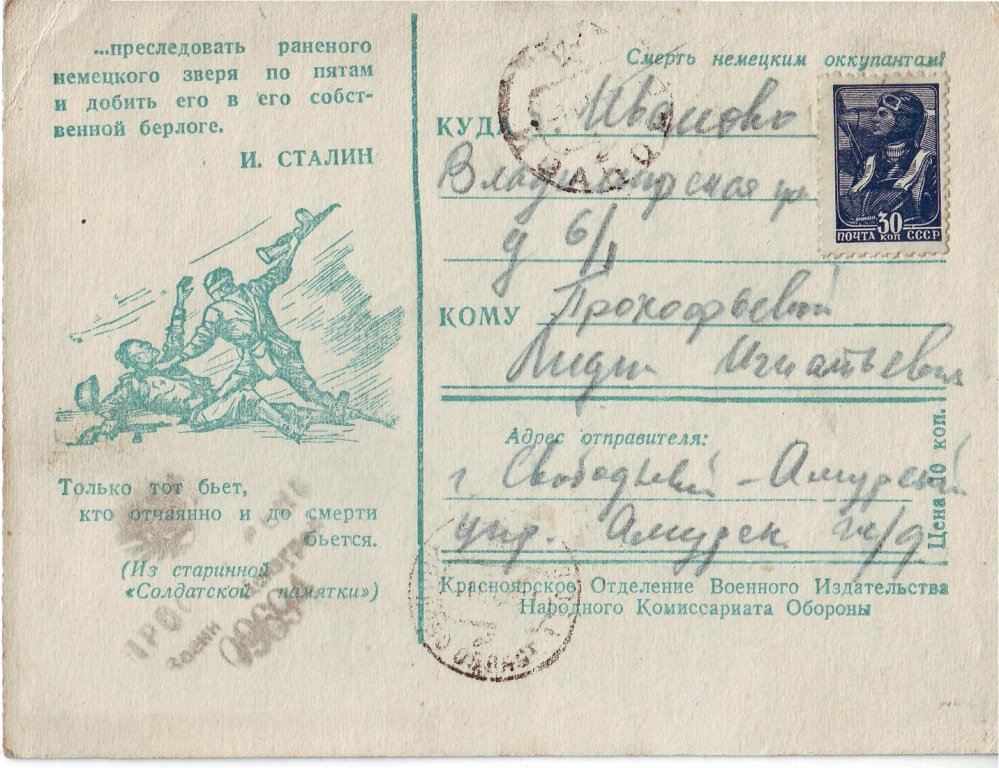 ...преследовать раненого
немецкого зверя по пятам
и добить его в его собст-
венной берлоге.
И. СТАЛИН
Только тот бьет,
кто отчаянно и до смерти
бьется.
(Из старинной
«Солдатской памятки»)
Смерть немецким оккупантам!
КУДА г. Иваново
Владимирская
д 6/1
30
ПОЧТА КОП СССР
КОМУ Прокофьевой
Лидии Игнатьевна
Адрес отправителя:
г. Свободный-Амурский
упр. Амурск ж/д
Цена 10 коп.
Красноярское Отделение Военного Издательства
Народного Комиссариата Обороны